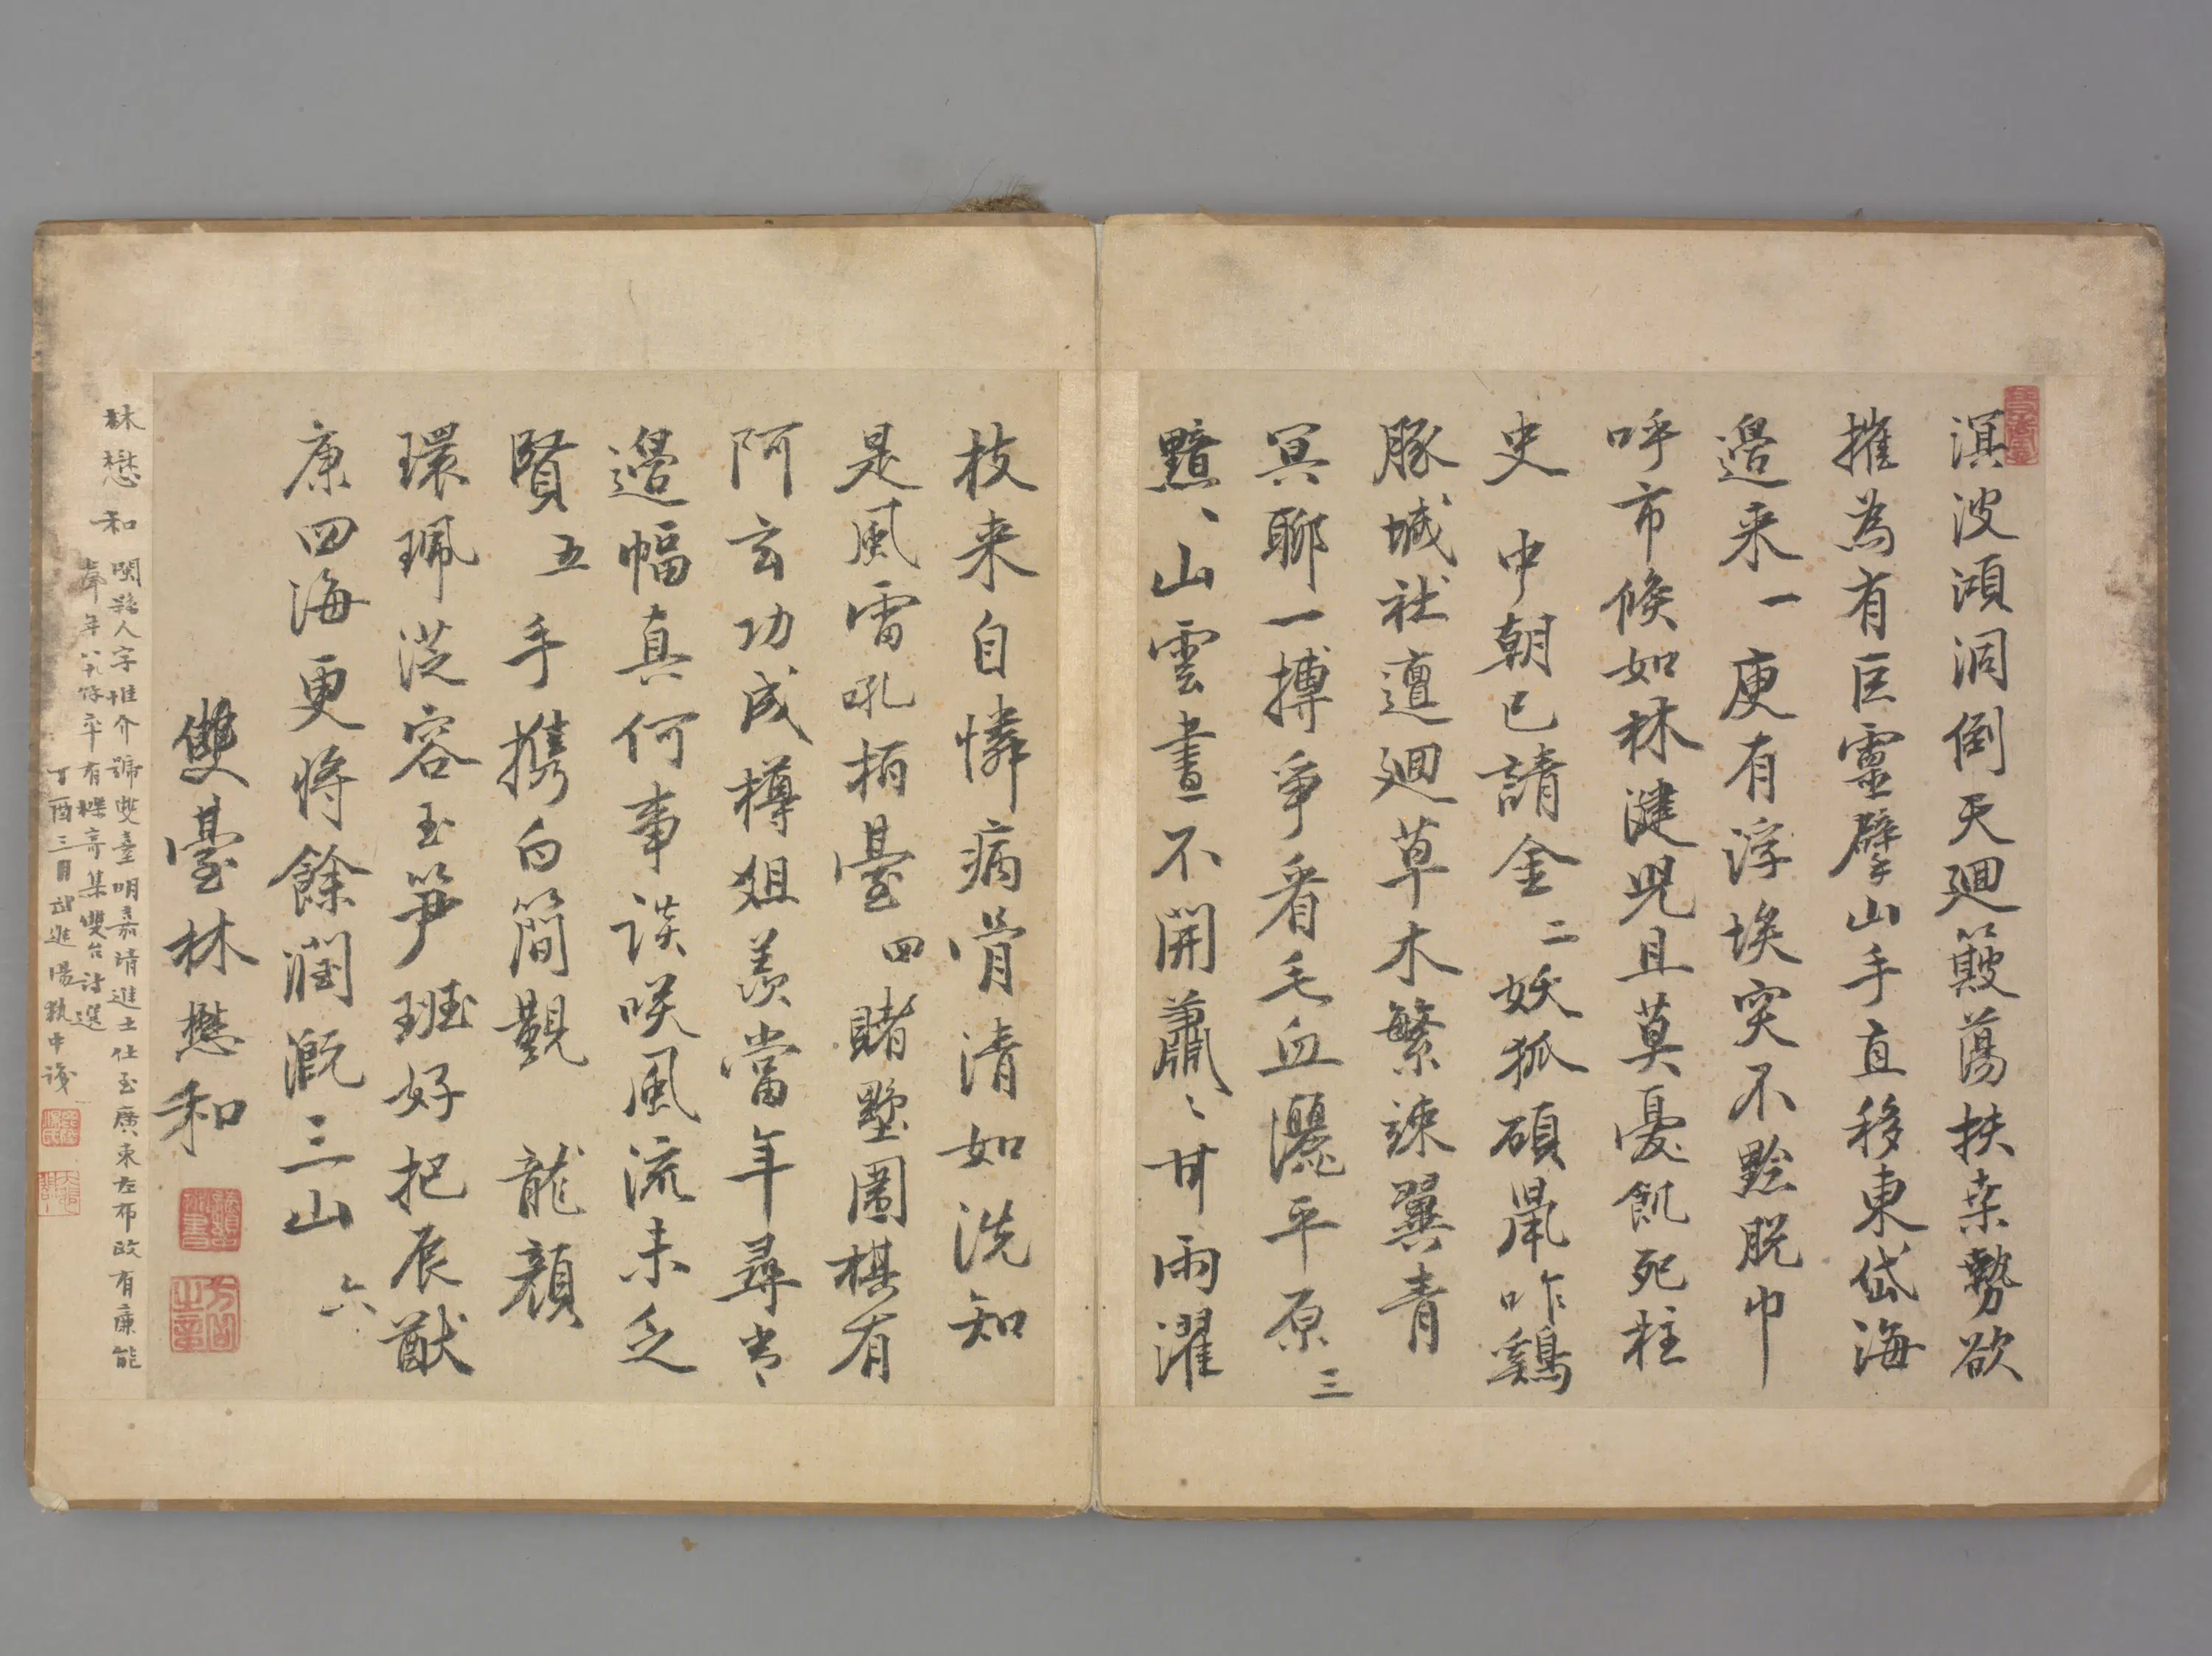 溟波澒洞倒天廻簸蕩扶桒勢欲
摧為有巨靈擘山手直移東岱海
邉来一庾有浮埃突不黔脱巾
呼市倏如林健児且莫憂飢死柱
史中朝已請金二妖狐碩鼠咋鷄
豚城社邅廻草木繁竦翼青
冥聊一搏爭看毛血灑平原三
黯、山雲晝不開蕭、甘雨濯
枝来自憐病骨清如洗知
是風雷吼栢臺四賭墅圍棋有
阿玄功成樽俎羡當年尋常
邉幅真何事談咲風流未乏
賢五手攜白簡覲龍顔
環珮從容玉笋班好把辰猷
康四海更將餘潤溉三山六
雙臺林懋和
林懋和閩縣人字惟介號雙臺明嘉靖進士仕至廣東左布政有廉能
年八十餘卒有櫟寄集雙台詩選
丁酉三月武進湯執中識